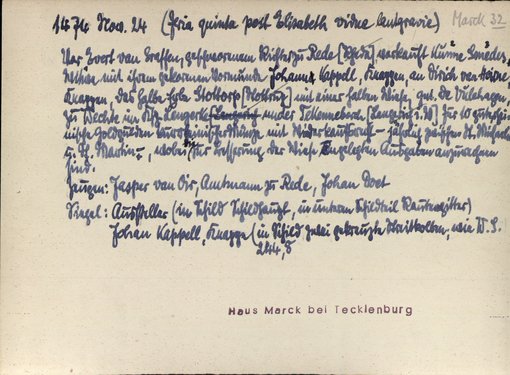 1474 Nov. 24 (Feria quinta post Elisabeth vidue lantgravie) Marck 32
Vor Evert van Graffen, geschworenem Richter zu Rede [Rheda], verkauft Kunne Smedes,
mit ihrem gekorenen Vormunde Johann Cappell, Knappen, an Dirich van
Knappen, das halbe Erbe Slottorp mit einer halben Wiese, gnt. de
zu Wechte im Ksp. Lengerke under Tekenneborch [Lengerich i. W.] für 60
Goldgulden Münze mit Wiederkaufsrecht – jährlich zwischen St. Michaelis
u. St. Martin –, wobei für Besserung der Wiese Ausgaben anzurechnen
sind.
Zeugen: Jasper van Oer, Amtmann zu Rede, Johan Voet
Siegel: Aussteller (im Schild Schildhaupt, im unteren Schildteil Rautengitter)
Johan Cappell, Knappe (im Schild zwei gekreuzte Streitkolben, wie W. S.
244, 8
Haus Marck bei Tecklenburg